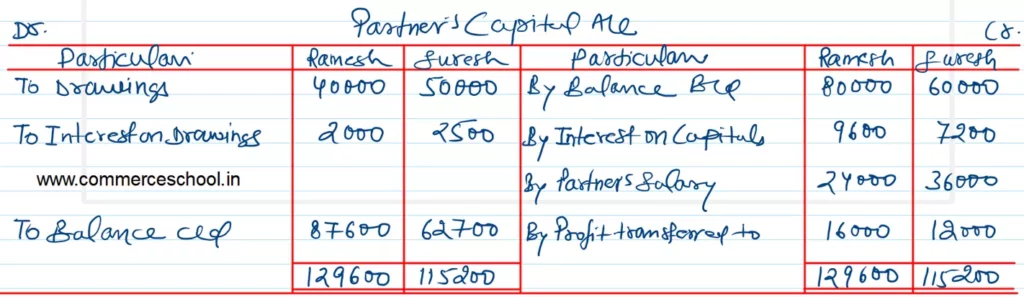 Partner's Capital A/c
Dr. Cr.
Particulars Ramesh Suresh Particulars Ramesh Suresh
To Drawings 40000 50000 By Balance B/d 80000 60000
To Interest on Drawings 2000 2500 By Interest on Capitals 9600 7200
www.commerceschool.in By Partner's Salary 24000 36000
To Balance c/d 87600 62700 By Profit transferred to 16000 12000
129600 115200 129600 115200